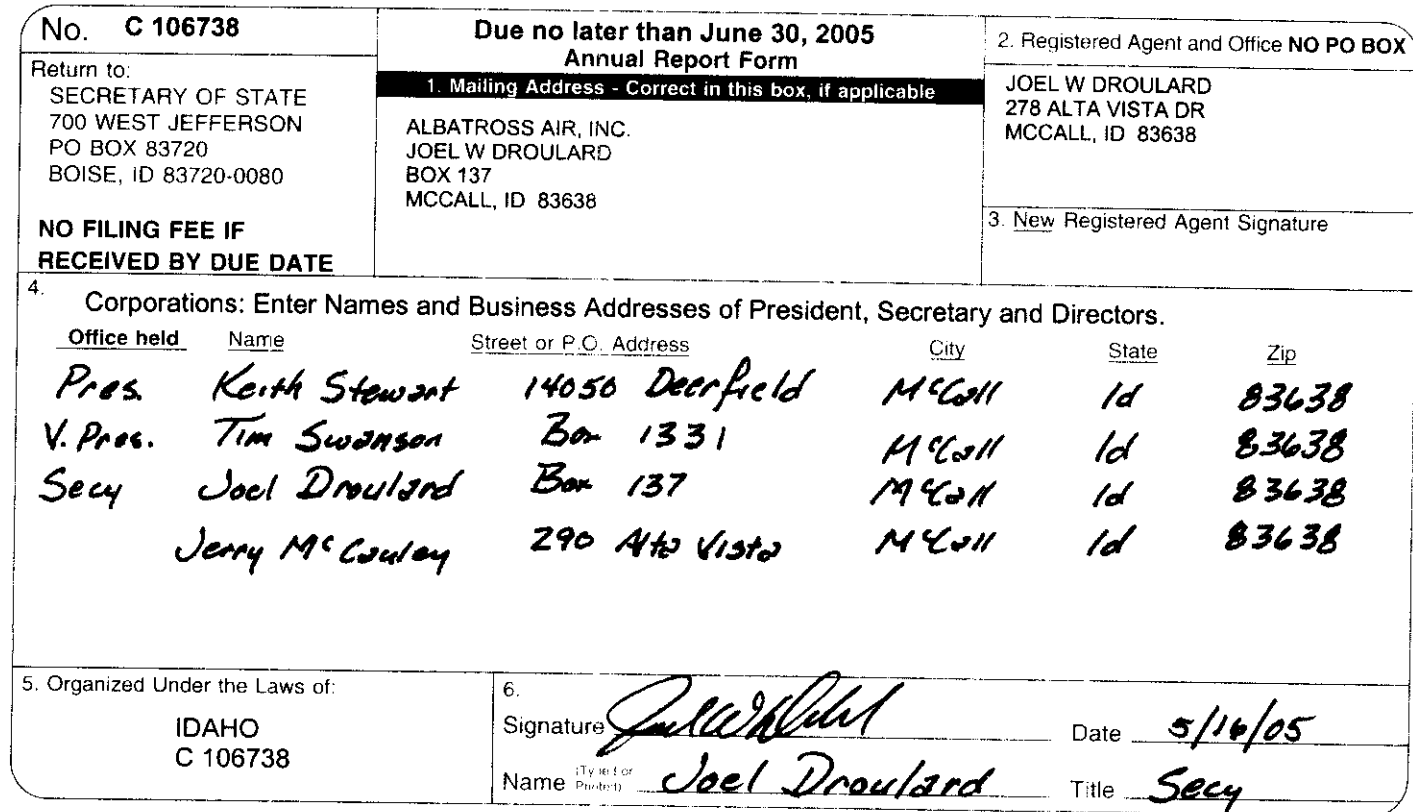 No. C 106738
Return to:
SECRETARY OF STATE
700 WEST JEFFERSON
PO BOX 83720
BOISE, ID 83720-0080
NO FILING FEE IF
RECEIVED BY DUE DATE
Due no later than June 30, 2005
Annual Report Form
1. Mailing Address - Correct in this box, if applicable
ALBATROSS AIR, INC.
JOEL W DROULARD
BOX 137
MCCALL, ID 83638
2. Registered Agent and Office NO PO BOX
JOEL W DROULARD
278 ALTA VISTA DR
MCCALL, ID 83638
3. New Registered Agent Signature
4. Corporations: Enter Names and Business Addresses of President, Secretary and Directors.
Office held Name Street or P.O. Address City State Zip
Pres. Keith Stewart 14050 Deerfield McCall Id 83638
V. Pres. Tim Swanson Box 1331 McCall Id 83638
Secy Joel Droulard Box 137 McCall Id 83638
Jerry McCauley 290 Alta Vista McCall Id 83638
5. Organized Under the Laws of:
IDAHO
C 106738
6.
Signature Date 5/16/05
Name (Typed or Printed) Joel Droulard Title Secy